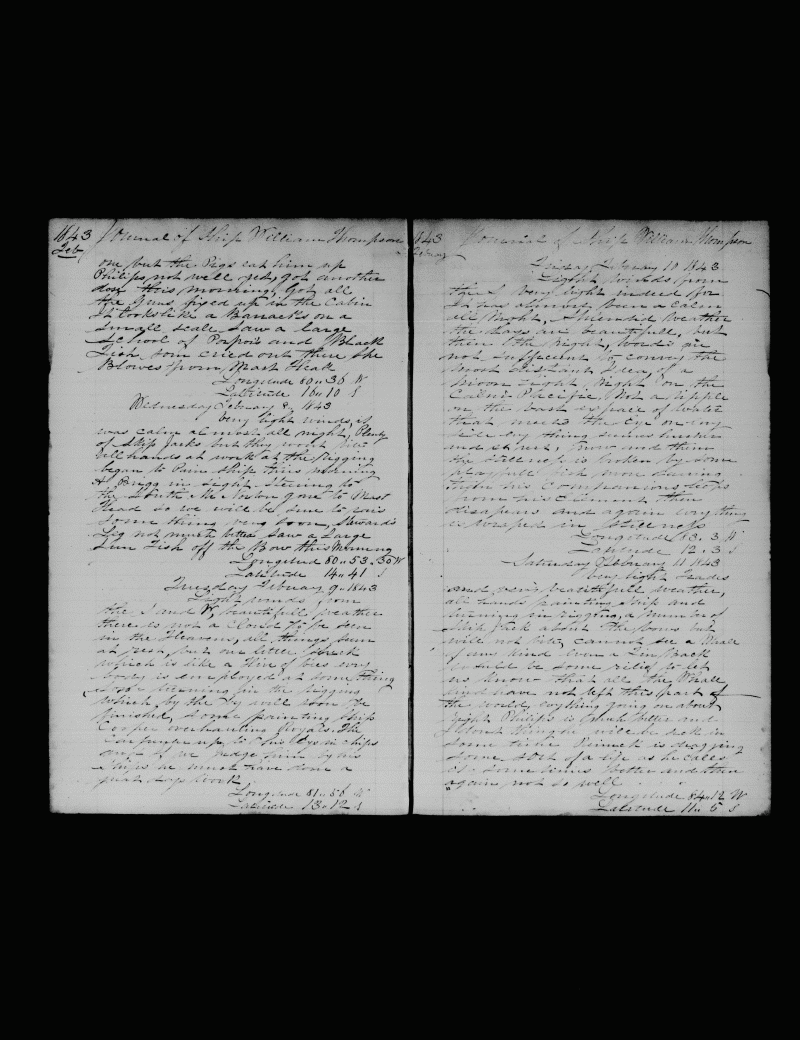 1843
Feb
Journal of Ship William Thompson
one but the Pigs eat him up
Philips not well yet, got another
dose this morning, Got all
the Guns fixed up in the Cabin
It looks like a Barracks on a
small scale. Saw a large
School of Popois and Black
Fish, som cried out there she
Blowes from Mast Head
Longitude 80 " 36 W
Latitude 16 " 10 S
Wednesday February 8, 1843
Very light winds, it
was calm almost all night, Plenty
of Skip Jacks but they wont bite
All hands at work at the rigging
began to Paint Ship this morning
A Brigg in sight Stering to
the South Mr Newton gone to Mast
Head so we will be sure to rais
some thing very soon, Stewards
Leg not much better Saw a Large
Sun Fish off the Bow this Morning
Longitud 80 " 53 . 30 W
Latitude 14 " 41 S
Tuesday February 9 " 1843
Light winds from
the S and W, beautifull weather
there is not a Cloud to be seen
in the Heavens, all things seem
at rest, but our little
which is like a Hive of bees every
body is employed at some thing
in the rigging
which by the by will soon be
finished, some painting Ship
Cooper overhauling Royals. The
Carpenter up to his Eyes in chips
and if we judge him by his
Chips he must have done a
great days work
Longitude 81 " 56 W
Latitude 13 " 12 S
1843
February
Journal of Ship William Thompson
Friday February 10 1843
Light winds from
the S Very light indeed for
It has almost been a calm
all Night, Splendid weather
the days are beautifull, but
then the Night, words are
not sufficient to convey the
most distant Idea of a
moon light Night on the
Calm Pacific, Not a ripple
on the vast expace of water
that meets the Eye on any
side Evry thing seems hushed
and still, now and then
the stillness is broken by some
playfull fish more daring
than his Companions leaps
from his Eliment then
disapears and again evrything
is wraped in stillness
Longitude 83 . 3 W
Latitude 12 . 3 S
Saturday February 11 1843
Very light Trades
and very beautifull weather,
all hands painting ship and
in rigging, a number of
Skip Jack about the bows but
will not bite, cannot see a Whale
of any kind even a Fin Back
would be some relief to let
us know that all the Whale
kind have not left this part of
the World, evrything going on about
right Philips is Much better and
I dont think will be sick in
some time Kinnek is dragging
some sort of a life as he calls
it. some times better and then
again not so well
Longitude 84 " 12 W
Latitude 11 " 5 S